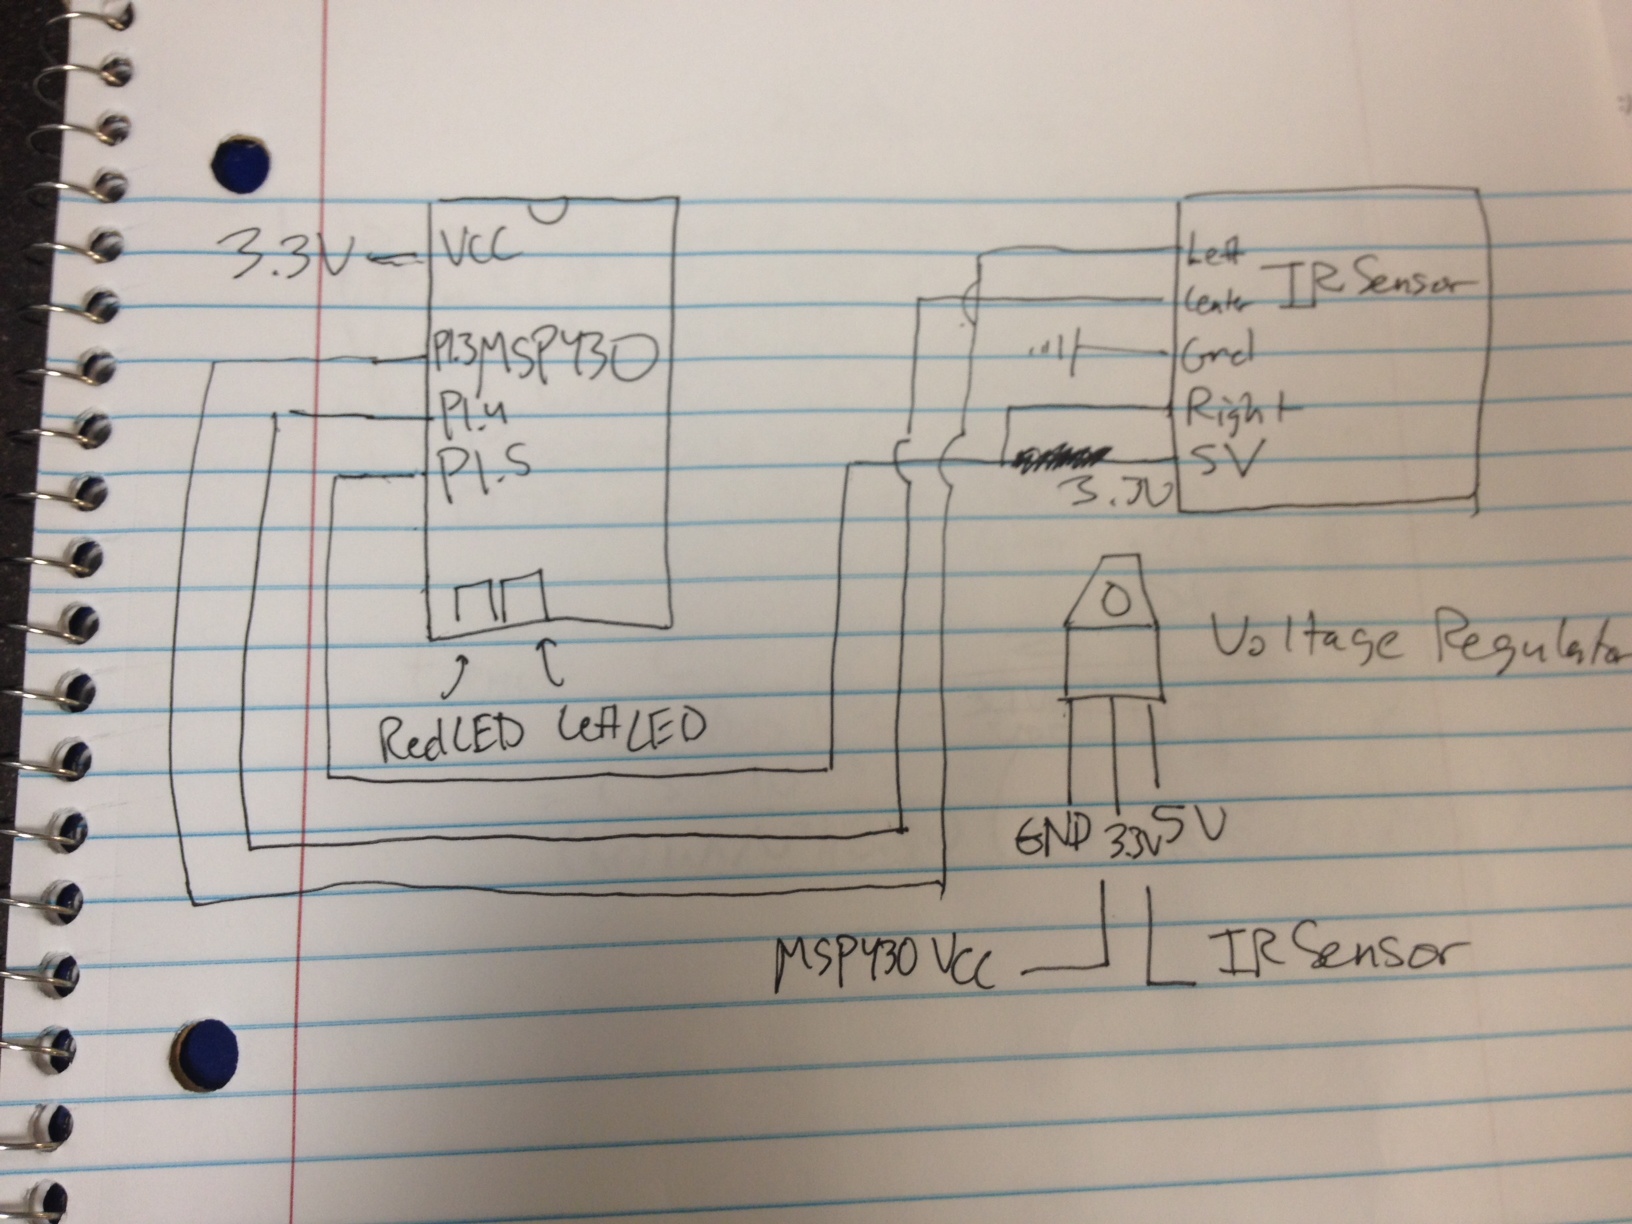 3.3V
VCC
P1.3 MSP430
P1.4
P1.5
Red LED
Left LED
Left
IR Sensor
Center
Gnd
Right
5V
3.3V
Voltage Regulator
GND
3.3V
5V
MSP430 VCC
IR Sensor